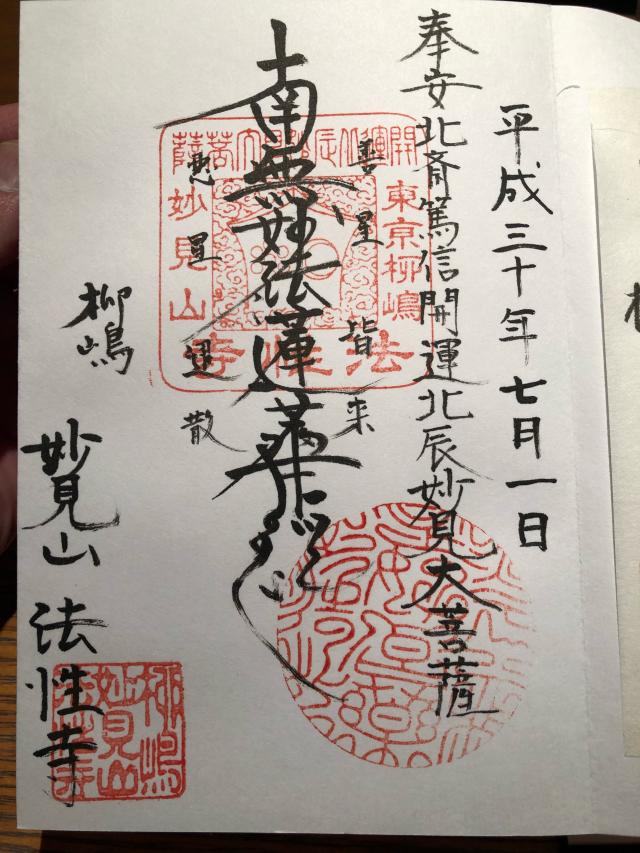 平成三十年七月一日
奉安北斎篤信開運北辰妙見大菩薩
善星皆来
南無妙法蓮華経
惡星退散
柳嶋
妙見山 法性寺
東京柳嶋
妙見山
法性寺
柳嶋
妙見山
法性寺